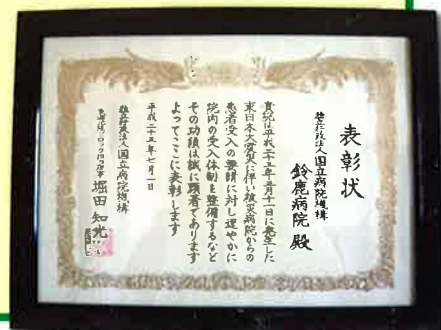 表彰状
独立行政法人国立病院機構
鈴鹿病院 殿
貴院は平成二十三年三月十一日に発生した
東日本大震災に伴い被災病院からの
患者受入の要請に対し速やかに
院内の受入体制を整備するなど
その功績は誠に顕著であります
よってここに表彰します
平成二十三年七月一日
独立行政法人国立病院機構
東海北陸ブロック担当理事
堀田 知光